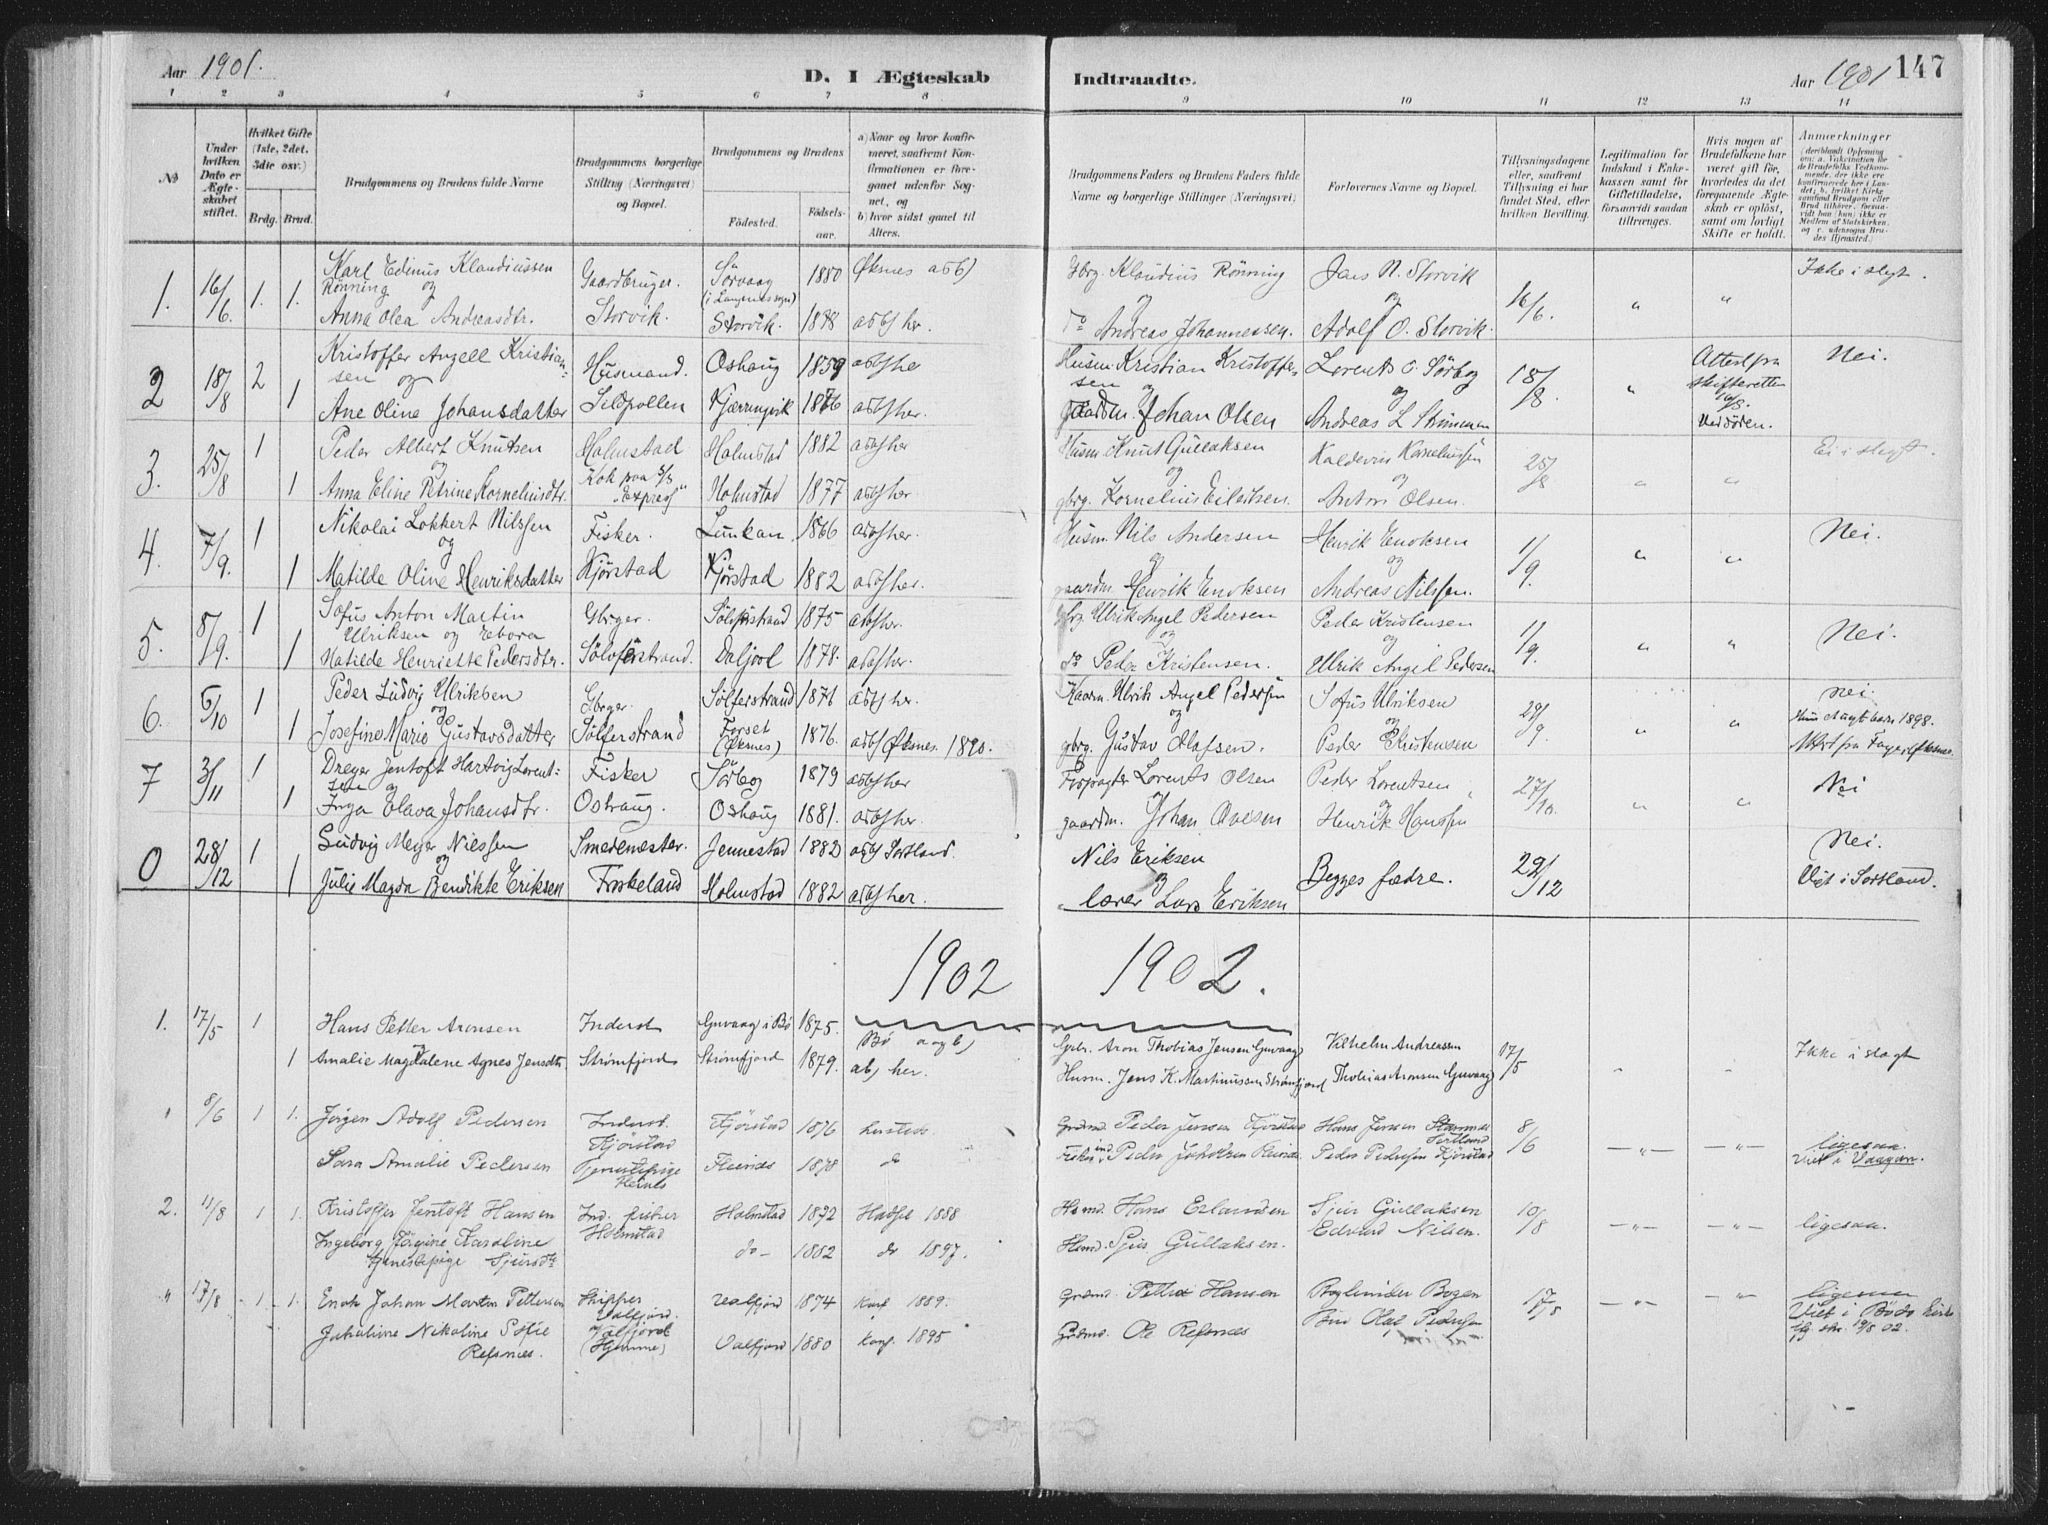 Aar 1901.
D. I Ægteskab
Indtraadte.
Aar 1901
147
1 2 3 4 5 6 7 8 9 10 11 12 13 14
No
Under hvilken Dato er Ægteskabet stiftet.
Hvilket Gifte (1ste, 2det, 3die osv.)
Brdg. Brud.
Brudgommens og Brudens fulde Navne
Brudgommens borgerlige Stilling (Næringsvei) og Bopæl.
Brudgommens og Brudens
Fødested.
Fødselsaar.
a) Naar og hvor konfirmeret, saafremt Konfirmationen er foregaaet udenfor Sognet, og
b) hvor sidst gaaet til Alters.
Brudgommens Faders og Brudens Faders fulde Navne og borgerlige Stillinger (Næringsvei)
Forlovernes Navne og Bopæl.
Tillysningsdagene eller, saafremt Tillysning ei har fundet Sted, efter hvilken Bevilling.
Legitimation for Indskud i Enkekassen samt for Giftetilladelse, forsaavidt saadan tiltrænges.
Hvis nogen af Brudefolkene har været gift før, hvorledes da det foregaaende Ægteskab er opløst, samt om lovligt Skifte er holdt.
Anmærkninger
1. 16/6. 1. 1. Karl Edinus Klaudiussen Rönning og Gaardbruger. Sörvaag (i Langenes sogn) 1880 Øknes a o b) Gbrg. Klaudius Rönning og Jens N. Storvik og 16/6. " " Ikke i slegt.
Anna Olea Andreasdtr. Storvik. Storvik. 1888 a o b) her. do Andreas Johannessen. Adolf O. Storvik.
2 18/8 2 1 Kristoffer Angell Kristiansen og Husmand. Oshaug 1859 a o b) he Husm. Kristian Kristoffersen og Lorents Sörbog og 18/8. " Attest fra skifteretten 16/8. Ved döden. Nei.
Ane Oline Johansdatter Seldpollen Kjærringvik 1876 a o b) her. Gaardm. Johan Olsen Andreas L
3. 25/8 1 1 Peder Albert Knutsen og Holmstad Holmstad 1882 a o b) her Husm Knut Gullaksen og Kaldevin Korneliussen og 25/8 " " Ei i slegt.
Anna Eline Petrine Korneliusdtr. Kok paa S/S "Expres" Holmstad 1877 a o b) her gbrg. Kornelius Eilertsen. Anton Olsen.
4. 7/9. 1 1 Nikolai Lokkert Nilssen og Fisker. Lunkan 1866 a o b) her. Husm. Nils Andersen og Henrik Enoksen og 1/9. " " Nei.
Matilde Oline Henriksdatter Kjörstad Kjörstad 1882 a o b) her. gaardm. Henrik Enoksen Andreas Nilssen.
5. 8/9. 1 1 Sofus Anton Martin Ulriksen og Ebora Gbrger. Sölferstrand 1875 a o b) her. Gbrg Ulrik Angel Pedersen og Peder Kristensen og 1/9. " " Nei.
Matilde Henriette Pedersdtr. Sölferstrand. 1878. a o b) her. do Peder Kristensen. Ulrik Angel Pedersen
6. 6/10 1 1 Peder Ludvig Ulriksen og Gbrger. Sölferstrand 1876 a o b) her Ulrik Angel Pedersen og Sofus Ulriksen og 29/9. " " Nei.
Josefine Marie Gustavsdatter Sölferstrand Forset (Øknes) 1876. a o b) Øknes. 1890. gbrg. Gustav Olafsen. Peder Kristensen
7 3/11 1 1 Dreyer Jentoft Hartvig Lorentsen og Fisker Sörbog 1879 a o b) her Forpagter Lorents Olsen og Peder Lorentsen og 27/10. " " Nei
Inga Olava Johansdtr. Oshaug. Oshaug 1881. a o b) her. gaardm. Johan Ovesen Henrik Hanssen
0 28/12 1 1 Ludvig Meyer Nilssen og Smedemester. Jennestad 1882 a o b) Sortland. Nils Eriksen og Begges fædre. 22/12 Nei.
Julie Magda Bendikte Eriksen Friskeland Holmstad 1882 a o b) her. lærer Lars Eriksen Viet i Sortland.
1902 1902.
1. 17/5 1 Hans Petter Aronsen Inderst Guvaag i Bø 1875. Bø a og b) Grbr. Aron Thobias Jensen Guvaag Vilhelm Andreassen 17/5 " " Ikke i slegt
1 Amalie Magdalene Agnes Jensdtr Strømfjord Strømfjord 1879. ab) her. Husm. Jens K. Martinussen Strømfjord Thobias Aronsen Guvaag
1 8/6 1 1. Jørgen Adolf Pedersen Inderst. Fjörstad Fjörstad 1876 herstede. Grdmd Peder Jensen Fjörstad Hans Jensen Sortland 8/6 — " — — " — ligesaa.
Sara Amalie Pedersen Tjenestepige Fleines 1878 do Peder Pedersen Fjörstad Viet i Vaagan.
2. 11/8 1 1. Kristoffer Jentoft Hansen Ind. fisker Holmstad Holmstad 1872 Hadsel 1888 Hsmd. Hans Erlandsen Sjur Gullaksen 10/8 — " — — " — ligesaa.
Ingeborg Jörgine Karoline Tjenestepige Sjursdtr do — 1882 do 1897. Hsmd. Sjur Gullaksen. Edvard Nilsen.
" 17/8 1 1. Enok Johan Morten Pettersen Skipper Valfjord. Valfjord 1874 konf 1889. Grdmd. Petter Hansen Bogen 17/8 — " — — " — ligesaa
Jakobine Nikoline Sofie Refsnes. Valfjord (Hjemme) Valfjord 1880 konf. 1895 Grdmd. Ole Refsnes Olaf Pedersen Viet i Bodø Kirke